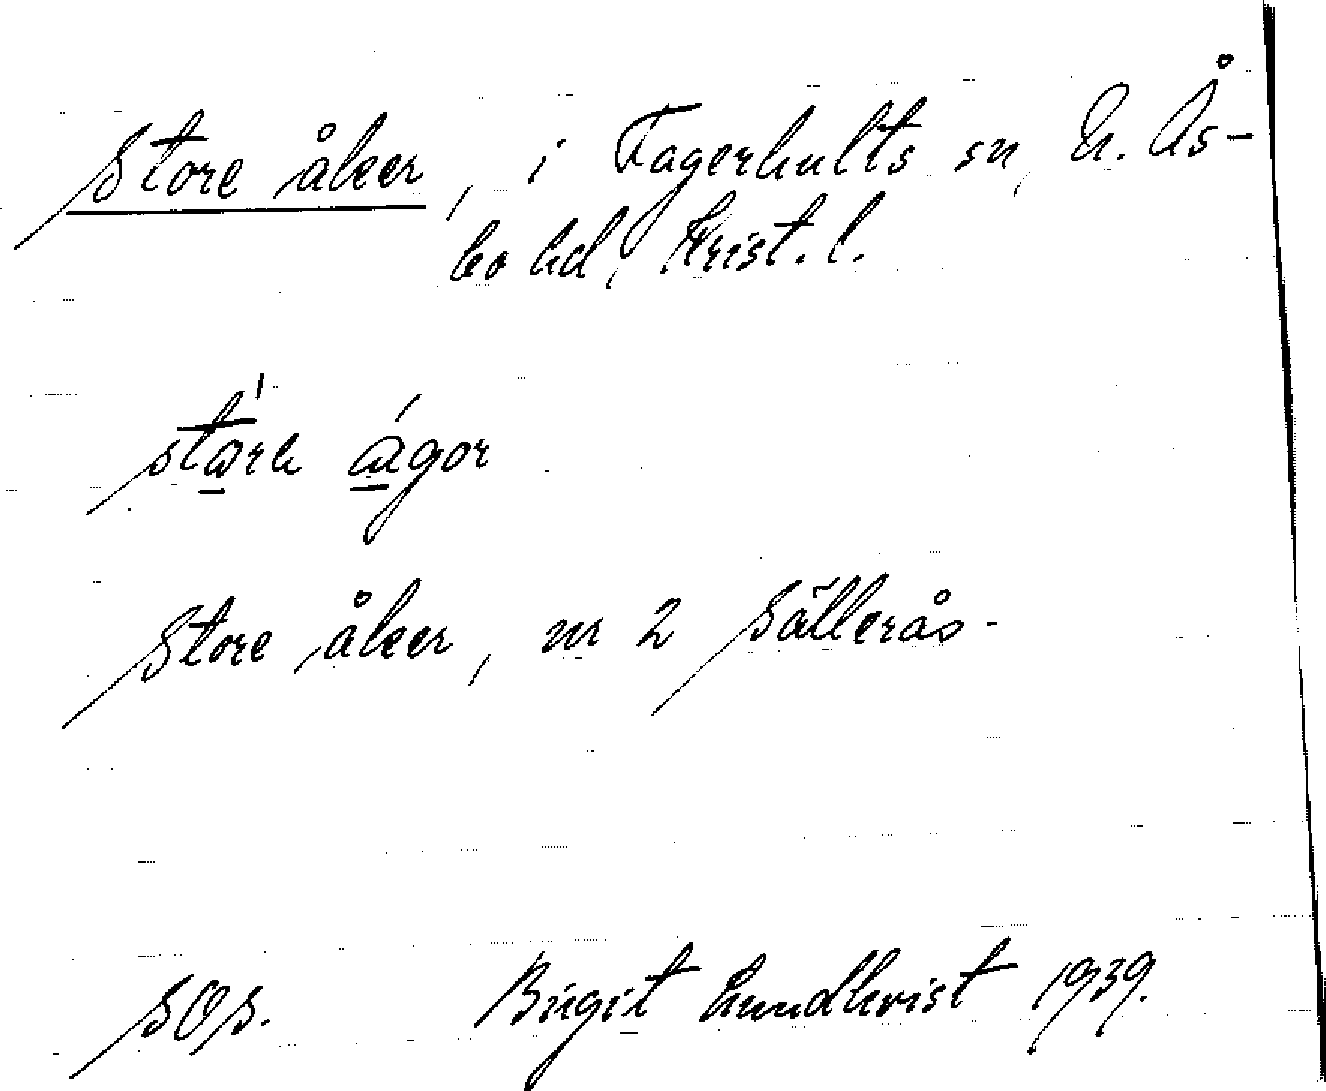 Store åker, i Fagerhults sn, N. Ås-
bo hd, Krist. l.
stark ågor
Store åker, nr 2 Sållerås-
SOS. Birgit Lundkvist 1939.